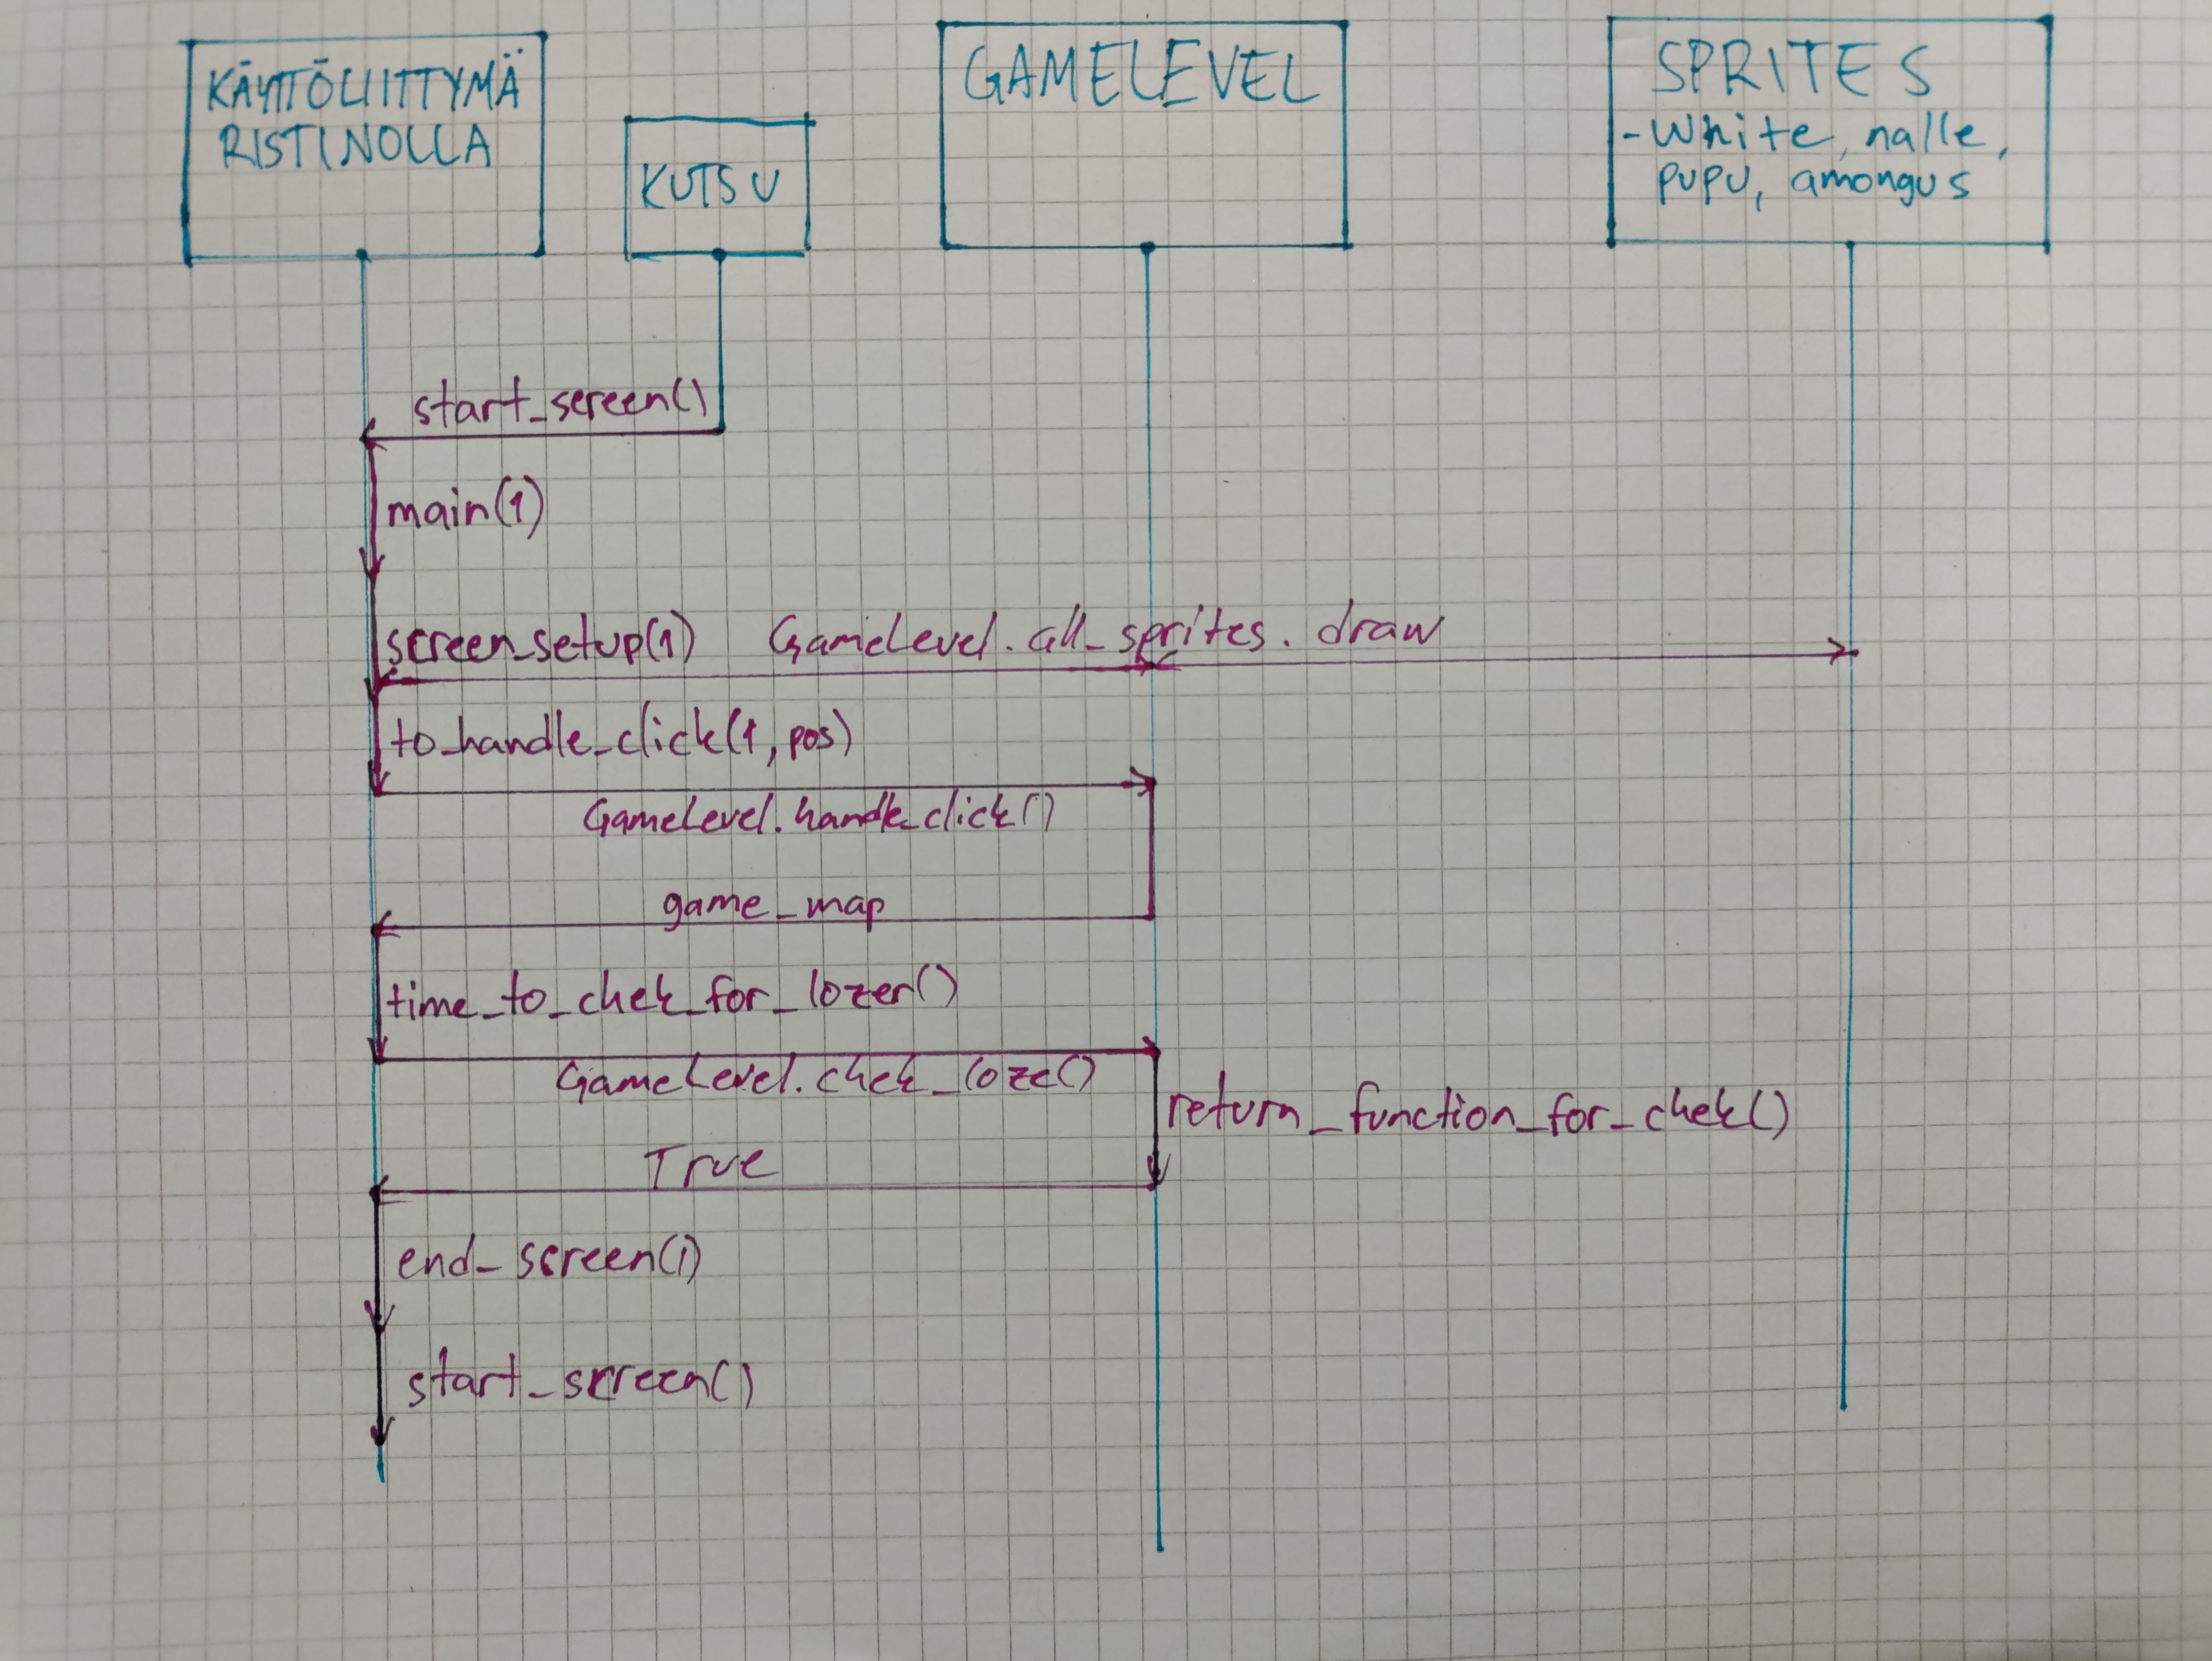 KÄYTTÖLIITTYMÄ
RISTINOLLA
KUTSU
GAMELEVEL
SPRITES
- White, nalle,
pupu, amongus
start_screen()
main(1)
screen_setup(1) GameLevel.all_sprites.draw
to_handle_click(1,pos)
GameLevel.handle_click()
game_map
time_to_chek_for_lozer()
GameLevel.chek_loze()
return_function_for_chek()
True
end_screen(1)
start_screen()